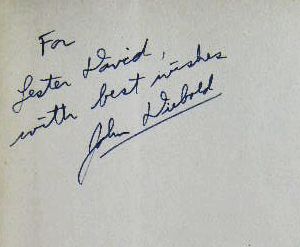 For
Lester David,
with best wishes
John Diebold